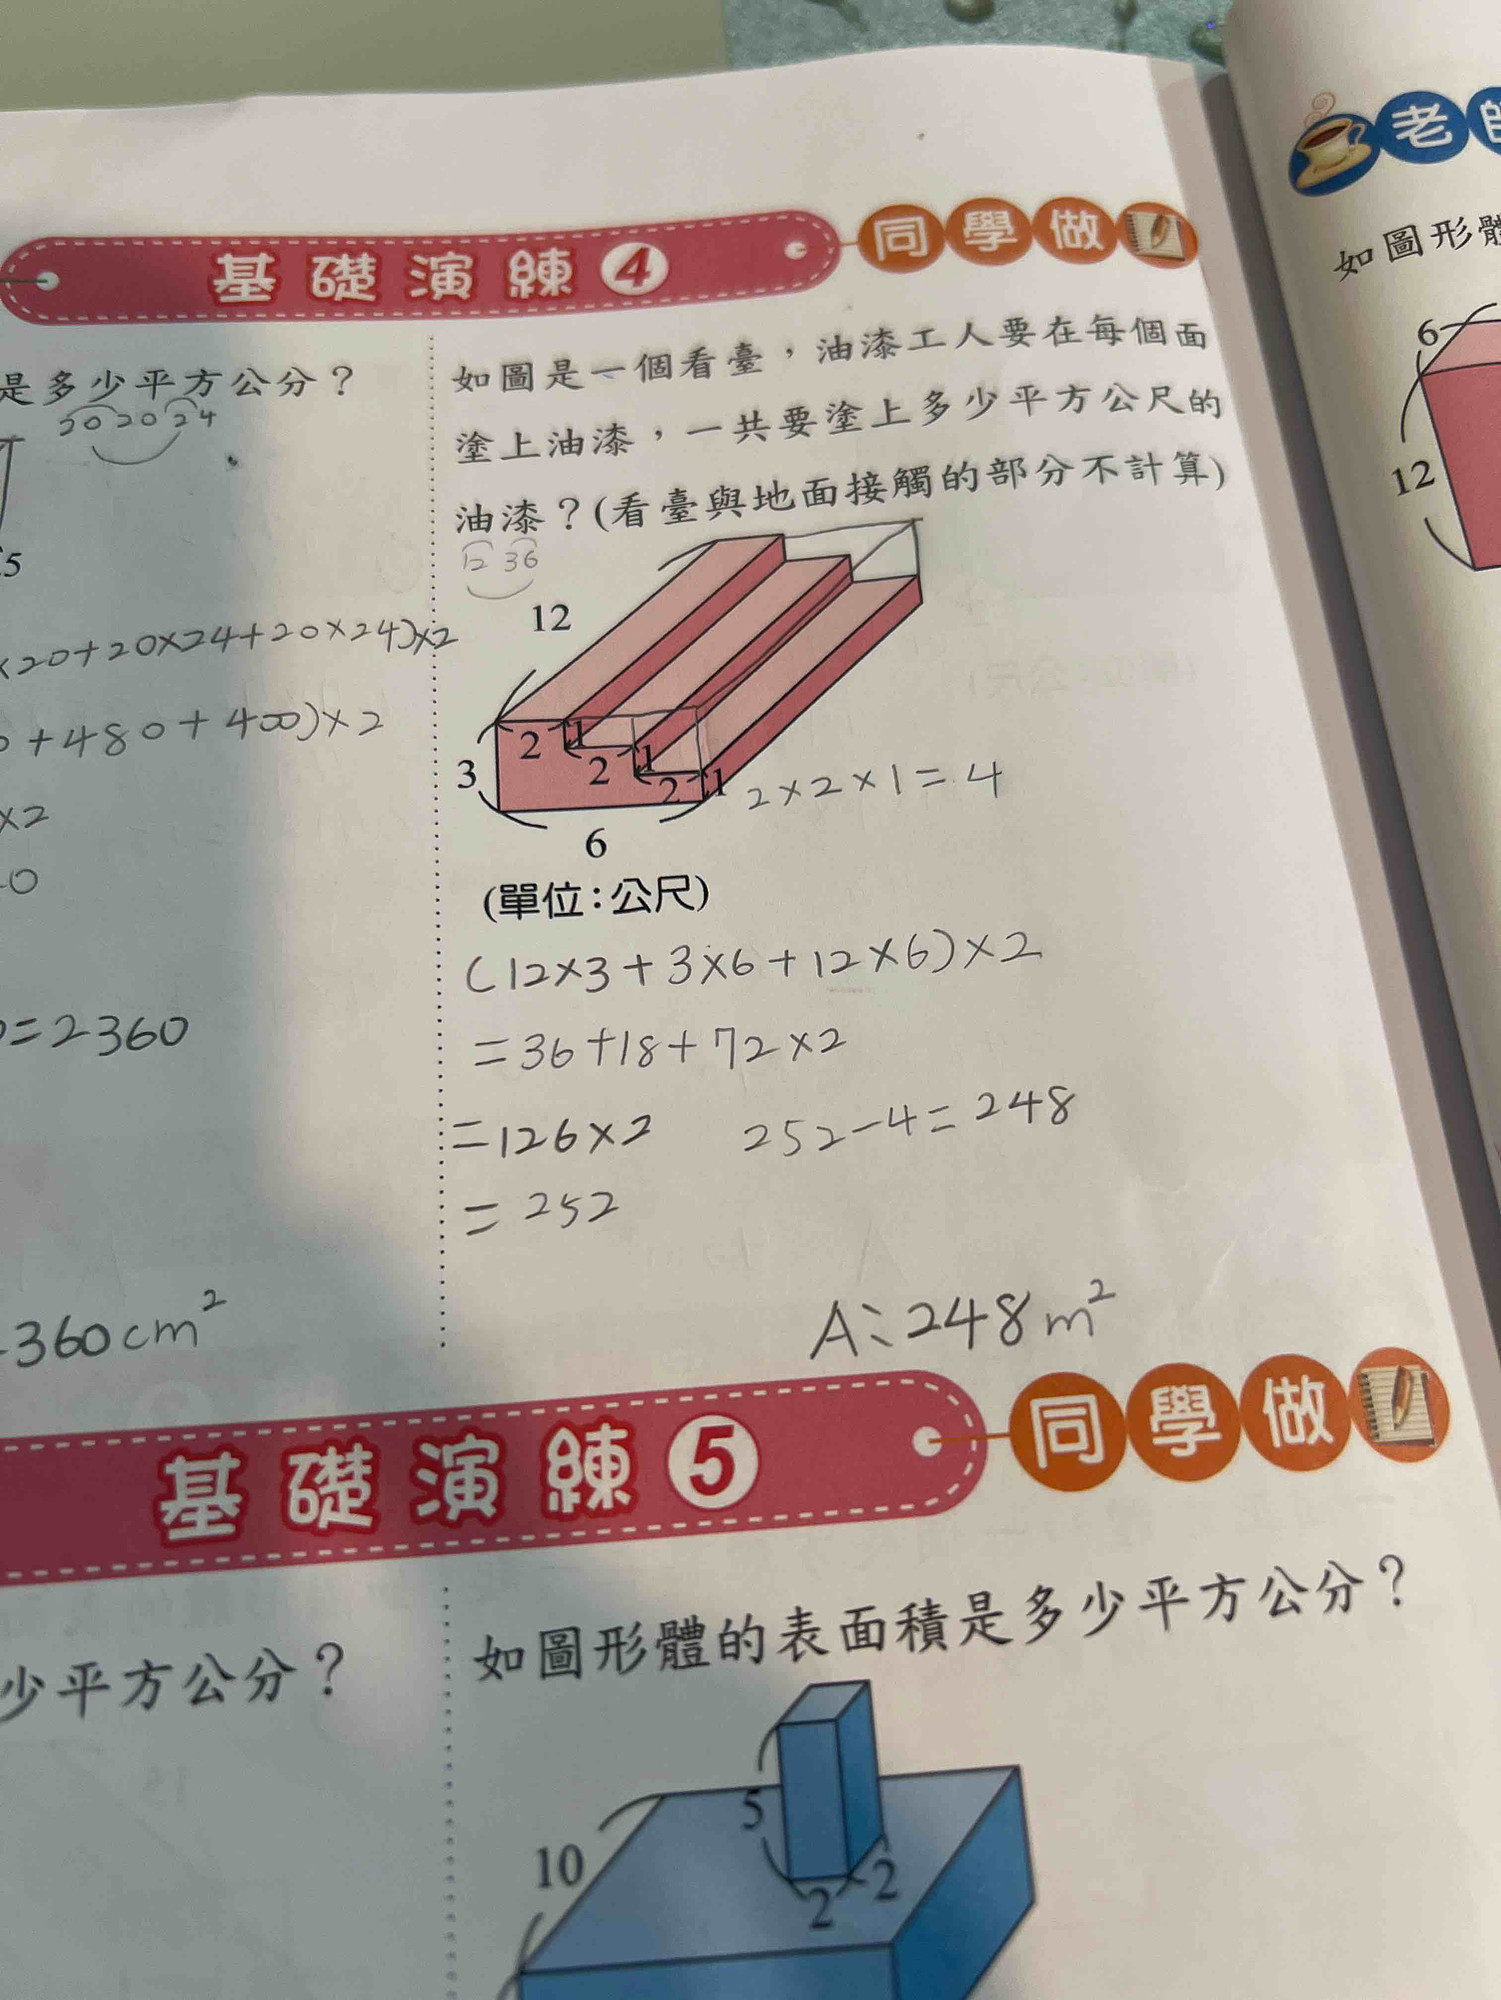 老
基礎演練4 同學做
如圖形
6
12
是多少平方公分？
20 20 24
5
×20+20×24+20×24)×2
+480+400)×2
×2
0
=2360
360cm²
如圖是一個看臺，油漆工人要在每個面
塗上油漆，一共要塗上多少平方公尺的
油漆？(看臺與地面接觸的部分不計算)
12 36
12
3
2 1
2 1
2 1
6
2×2×1=4
(單位：公尺)
(12×3+3×6+12×6)×2
=36+18+72×2
=126×2 252-4=248
=252
A:248m²
基礎演練5 同學做
少平方公分？
如圖形體的表面積是多少平方公分？
5
10
2 2